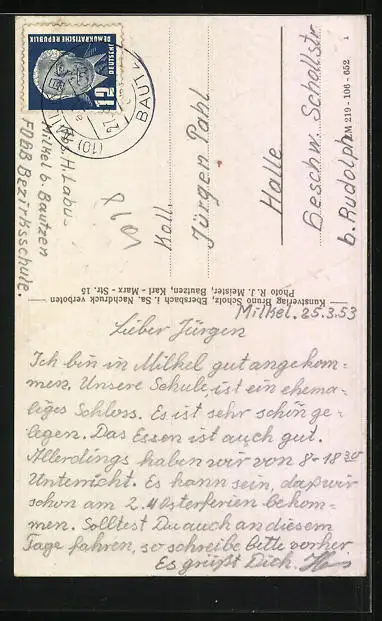 DEUTSCHE
DEMOKRATISCHE REPUBLIK
12
BAUTZ
(10)
Abs. H. Labu-
Milkel b. Bautzen
FDGB Bezirksschule.
Koll.
Jürgen Pahl
Halle
Geschw. Schollstr
b. Rudolph
M 219 - 106 - 652
1
Kunstverlag Bruno Scholz, Ebersbach i. Sa. Nachdruck verboten
Photo R. J. Meister, Bautzen, Karl - Marx - Str. 15
Milkel. 25.3.53
Lieber Jürgen
Ich bin in Milkel gut angekom-
men. Unsere Schule, ist ein ehema-
liges Schloss. Es ist sehr schön ge-
legen. Das Essen ist auch gut.
Allerdings haben wir von 8-18³⁰
Unterricht. Es kann sein, daß wir
schon am 2.4 Osterferien bekom-
men. Solltest Du auch an diesem
Tage fahren, so schreibe bitte vorher
Es grüßt Dich.